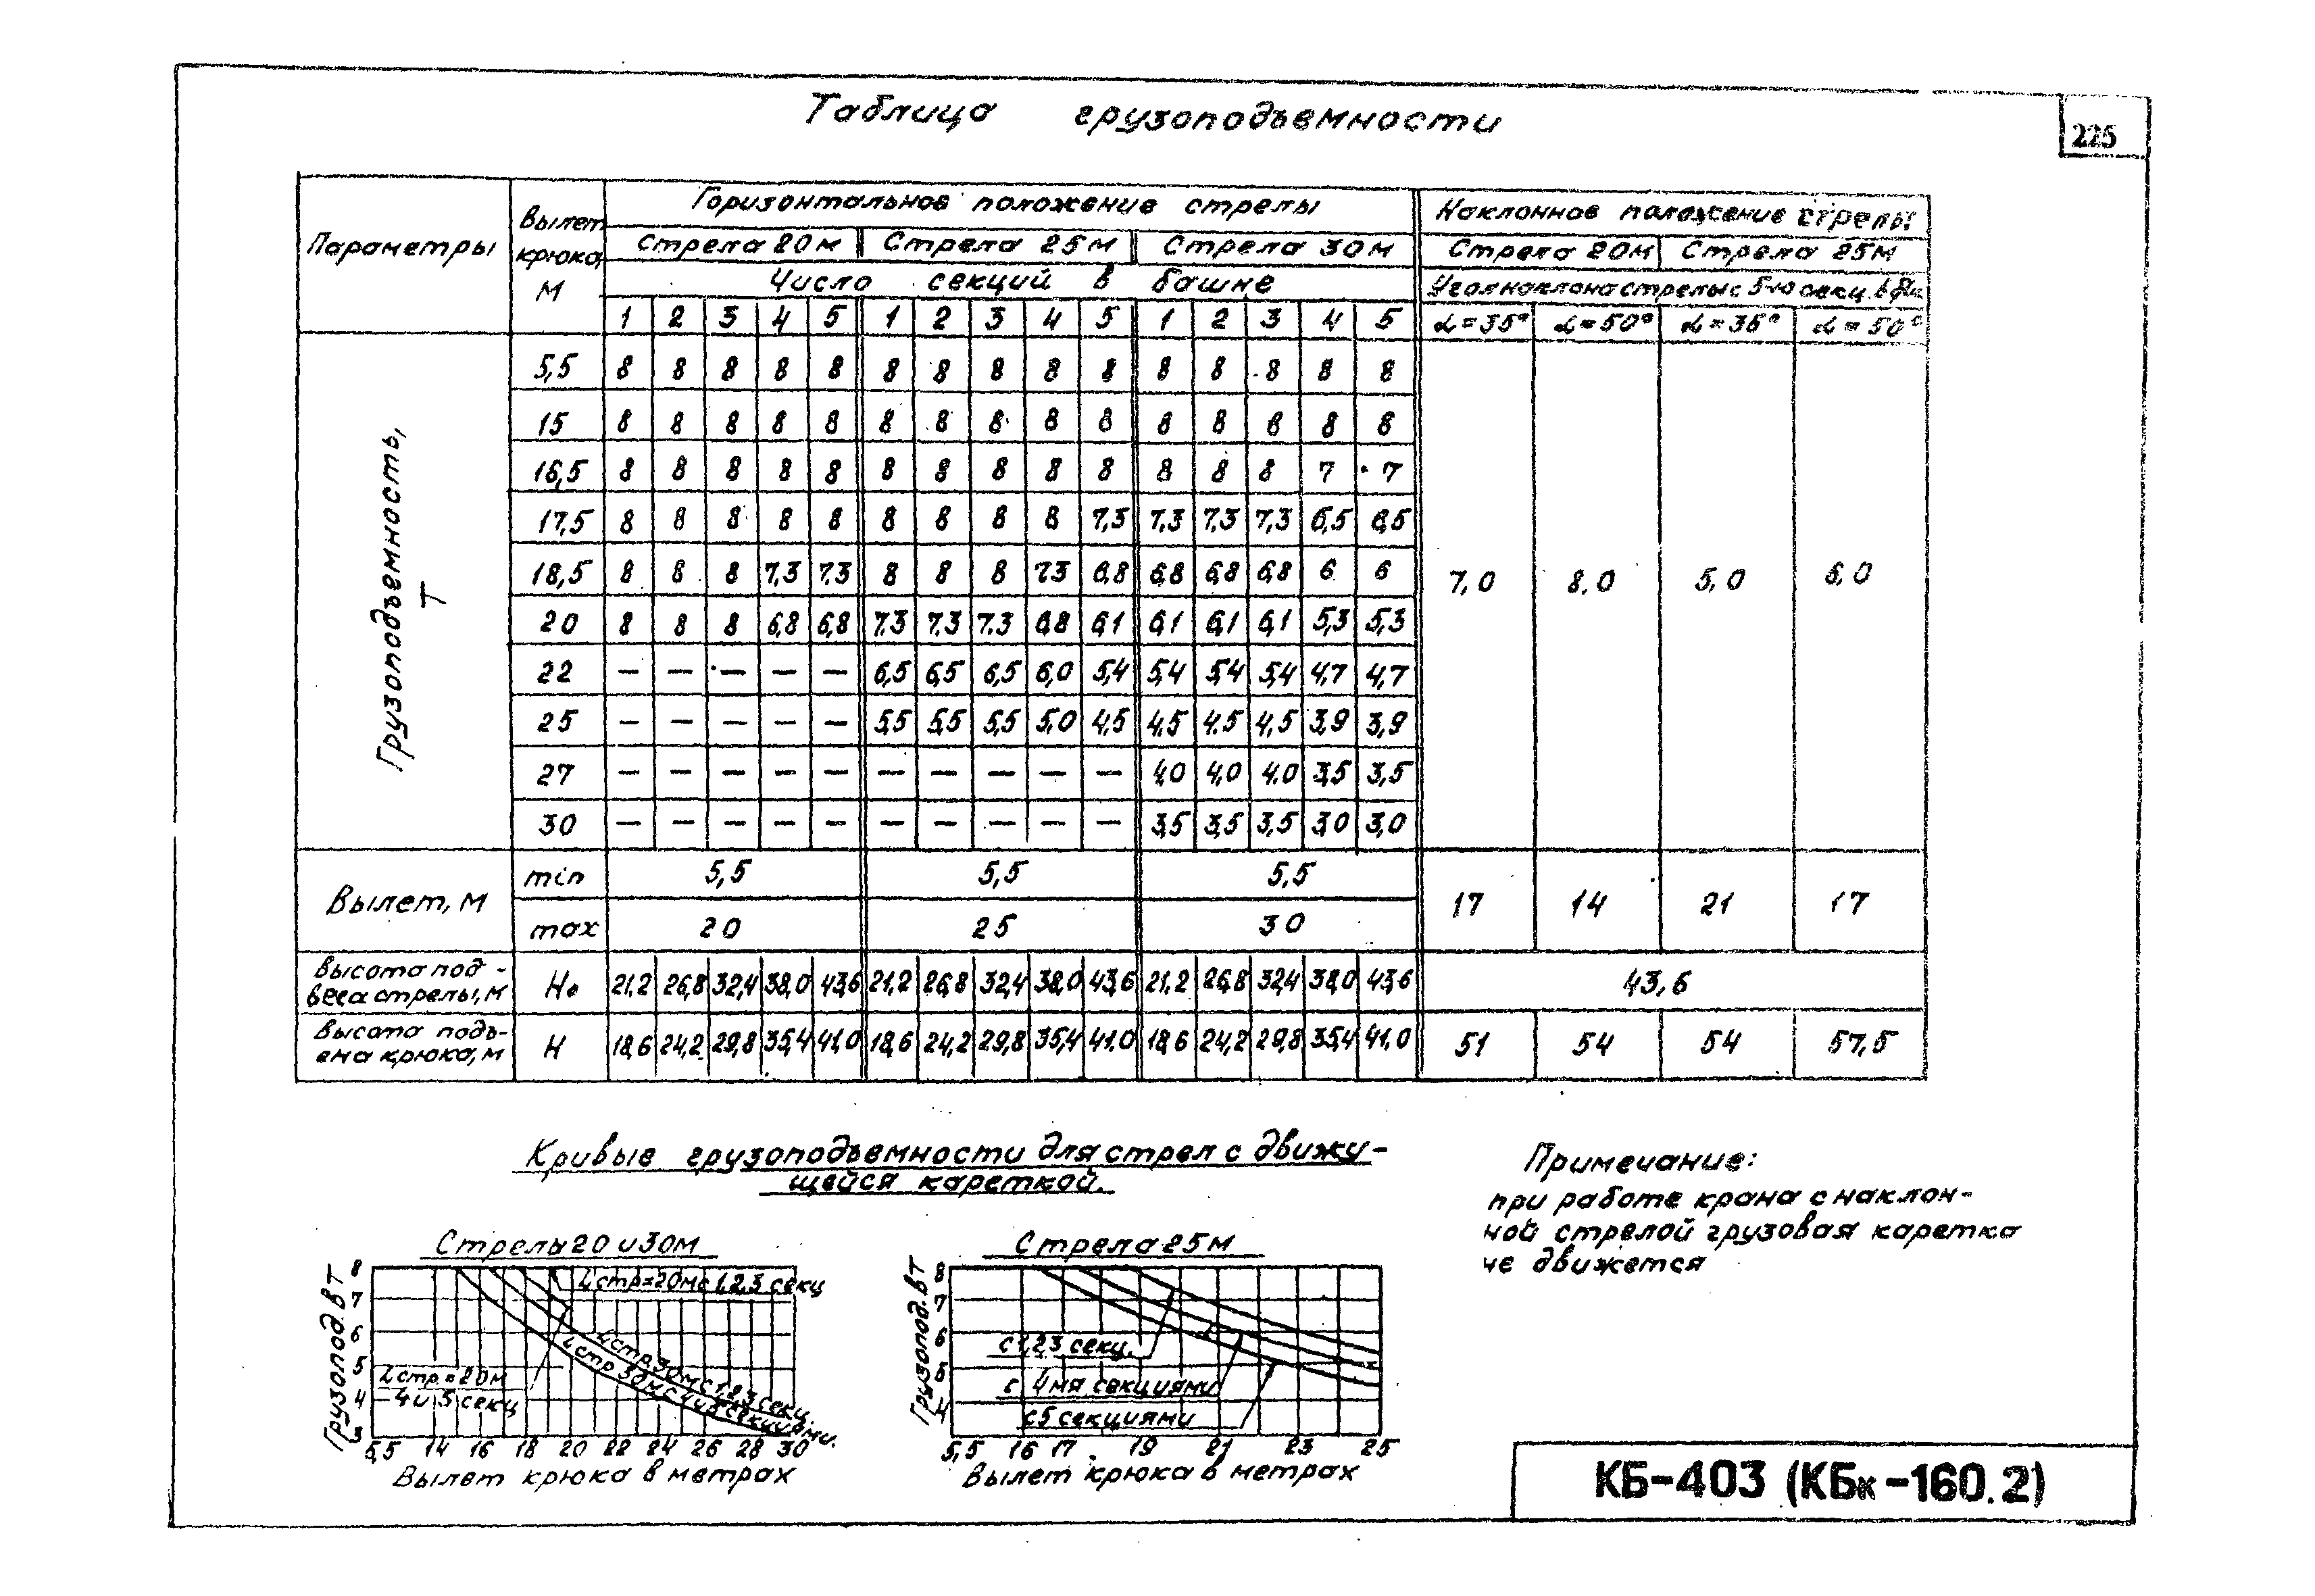 Таблица грузоподъемности
225
Параметры
Вылет крюка, м
Горизонтальное положение стрелы
Наклонное положение стрелы
Стрела 20м Стрела 25м Стрела 30м Стрела 20м Стрела 25м
Число секций в башне
Угол наклона стрелы с 5-ю секц.
1 2 3 4 5 1 2 3 4 5 1 2 3 4 5 α=35° α=50° α=35° α=50°
Грузоподъемность, Т
5,5 8 8 8 8 8 8 8 8 8 8 8 8 8 8 8
15 8 8 8 8 8 8 8 8 8 8 8 8 8 8 8
16,5 8 8 8 8 8 8 8 8 8 8 8 8 8 7 7
17,5 8 8 8 8 8 8 8 8 8 7,3 7,3 7,3 7,3 6,5 6,5
18,5 8 8 8 7,3 7,3 8 8 8 7,3 6,8 6,8 6,8 6,8 6 6 7,0 8,0 5,0 6,0
20 8 8 8 6,8 6,8 7,3 7,3 7,3 6,8 6,1 6,1 6,1 6,1 5,3 5,3
22 — — — — — 6,5 6,5 6,5 6,0 5,4 5,4 5,4 5,4 4,7 4,7
25 — — — — — 5,5 5,5 5,5 5,0 4,5 4,5 4,5 4,5 3,9 3,9
27 — — — — — — — — — — 4,0 4,0 4,0 3,5 3,5
30 — — — — — — — — — — 3,5 3,5 3,5 3,0 3,0
Вылет, м
min 5,5 5,5 5,5
17 14 21 17
max 20 25 30
Высота под-
веса стрелы, м
Но 21,2 26,8 32,4 38,0 43,6 21,2 26,8 32,4 38,0 43,6 21,2 26,8 32,4 38,0 43,6 43,6
Высота подъ-
ема крюка, м
Н 18,6 24,2 29,8 35,4 41,0 18,6 24,2 29,8 35,4 41,0 18,6 24,2 29,8 35,4 41,0 51 54 54 57,5
Кривые грузоподъемности для стрел с движу-
щейся кареткой.
Примечание:
при работе крана с наклон-
ной стрелой грузовая каретка
не движется
Стрелы 20 и 30м
Грузопод. в т
8
7
6
5
4
3
Lстр=20м с 1,2,3 секц
Lстр.30м с 1,2,3 секц.
Lстр 30м с 4 и 5 секциями.
Lстр.=20м
4 и 5 секц
5,5 14 16 18 20 22 24 26 28 30
Вылет крюка в метрах
Стрела 25м
Грузопод. в т
8
7
6
5
4
с 1,2,3 секц.
с 4мя секциями
с 5 секциями
5,5 16 17 19 21 23 25
Вылет крюка в метрах
КБ-403 (КБк-160.2)